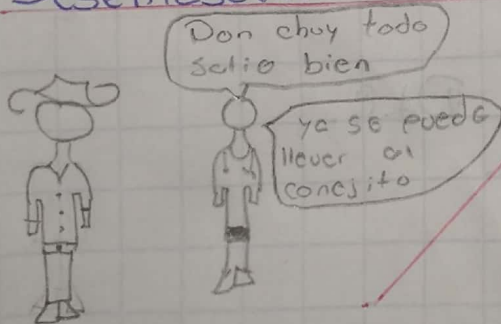 Don chuy todo
salio bien
ya se puede
llevar al
conejito